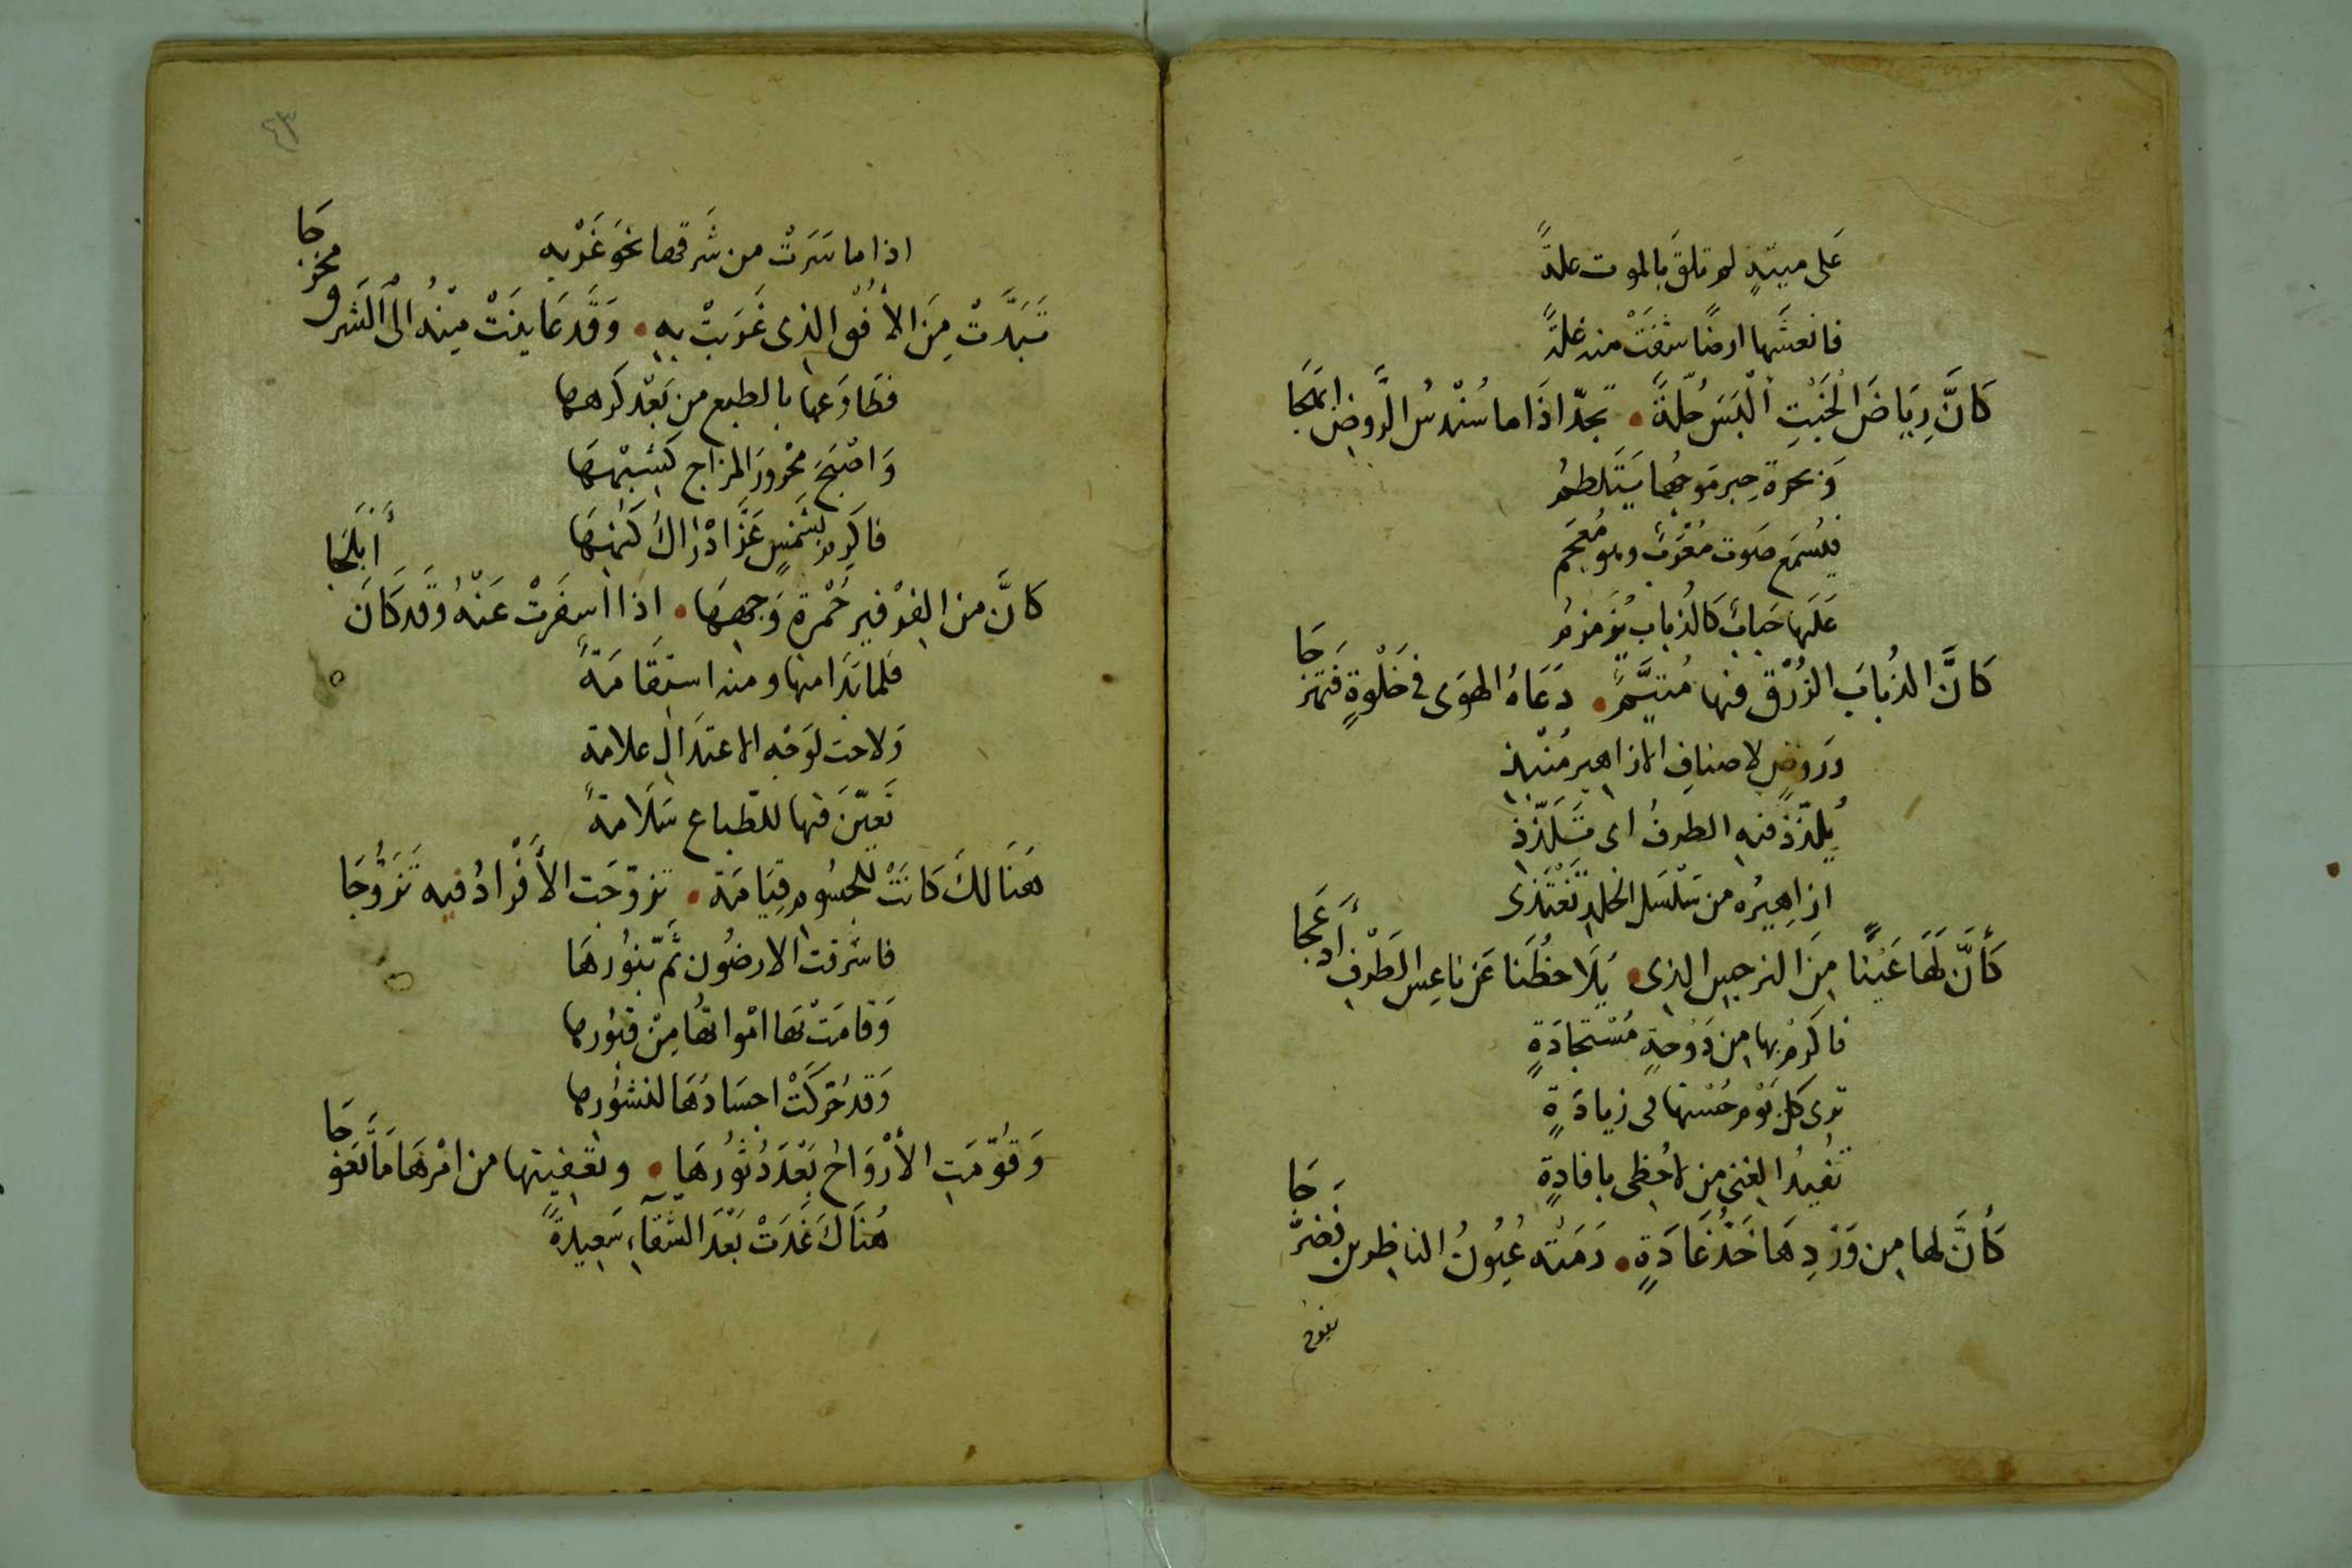 عَلى ميتةٍ لم تلقَ بالموت علةً
فانعشَها ارضًا شفَتْ منه غلةً
كَانَّ رِيَاضَ الْخَبْتِ اُلْبَسَ حُلّةً • تجدّ اذَا ما سُنْدسُ الرَّوضِ انهَجَا
وَبحرة حِبرٍ مَوجُها يَتَلطمُ
فيُسْمَع صَوت مُعْرَبٌ وهو مُعْجَم
عَلَيها حَبابٌ كالذباب يُزمزمُ
كَانَّ الذُبابَ الزُرْق فيها مُتيَّمٌ • دَعَاهُ الهوَى في خَلْوةٍ فَتهزجَا
وَروضٍ لاصنافِ الازاهيرِ مُنْبِذ
يُلذّذ فيه الطرفُ اى تَلَذّذ
ازاهيرُه من سَلْسَل الخلد تَغْتَذى
كَأنَّ لَهَا عَيْنًا مِنَ النرجسِ الذى • يَلَاحظُنا عَن ناعِسِ الطَرْفِ أدعَجَا
فاكرمْ بها من دَوْحةٍ مُسْتجادَةٍ
ترى كل يَوْم حُسْنها فى زيادَةٍ
تُفيدُ الغنى من لاحُظى بافادةٍ
كَأنَّ لها من وَرْدِهَا خَدُّ غَادَةٍ • رَمَتْه عُيُونُ الناظرين فضَرَّجَا
اذا ما سَرَتْ من شَرقها نحوَ غَرْبهِ
تَبَدَّتْ مِنَ الأُفْق الذى غَرَبتْ بهِ • وَقَد عَاينَتْ مِنْهُ الى الشرق مخرَجَا
فطَاوَعها بالطبع من بَعْد كرهها
وَاصْبَحَ مَحْرورَ المزاج كَشبْهِهَا
فاكرِم بشَمْسٍ عَزَّ ادْرَاكُ كنهِهَا
كَانَّ من الفرفير حُمْرة وَجهِهَا • اذا اسفَرتْ عَنْهُ وَقَد كَانَ أبلَجَا
فلما بَدَا منها ومنه استِقَامَةٌ
وَلاحت لوَجْهِ الاعتدالِ علامة
تَعيّنَ فيها للطباع سَلَامةٌ
هُنَالكَ كَانَتْ للجسُوم قِيَامَة • تزوّجَت الأفْرَادُ فيه تَزَوُّجَا
فاشرقت الارضُون ثَمّ بنُورهَا
وَقامَتْ بها امْواتُهَا مِنْ قبُورها
وَقد حُرّكَتْ اجسَادُهَا لنشُورها
وَقُوِّمَتِ الأرْوَاحُ بَعْدَ دُثُورُهَا • وتقفيتها من امْرهَا مَا تَعَوَّجَا
هُنَاكَ غَدَتْ بَعْدَ الشقآءِ سَعِيدةً